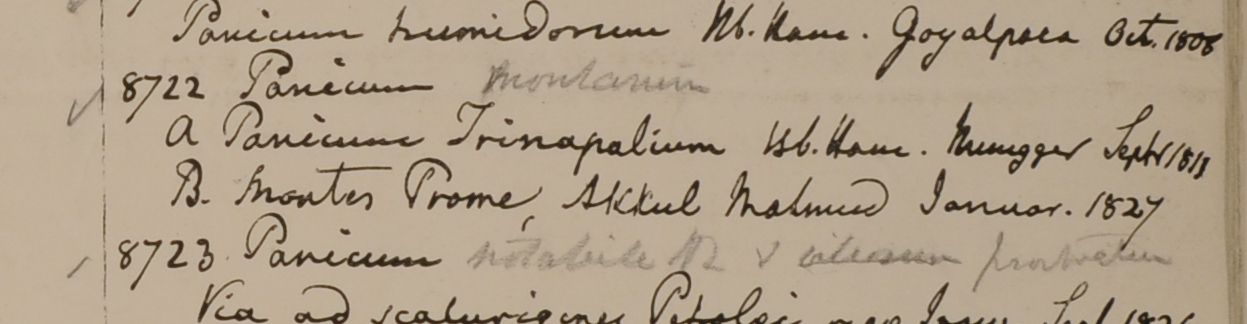 Panicum humidorum Hb. Ham. Goyalpara Oct. 1808
8722 Panicum montanum
A Panicum Trinapalium Hb. Ham. Mungger Septr 1811
B. Montes Prome, Akkul Mahmud Januar. 1827
8723 Panicum notabile prostratum
Via ad scaturigines Petolei